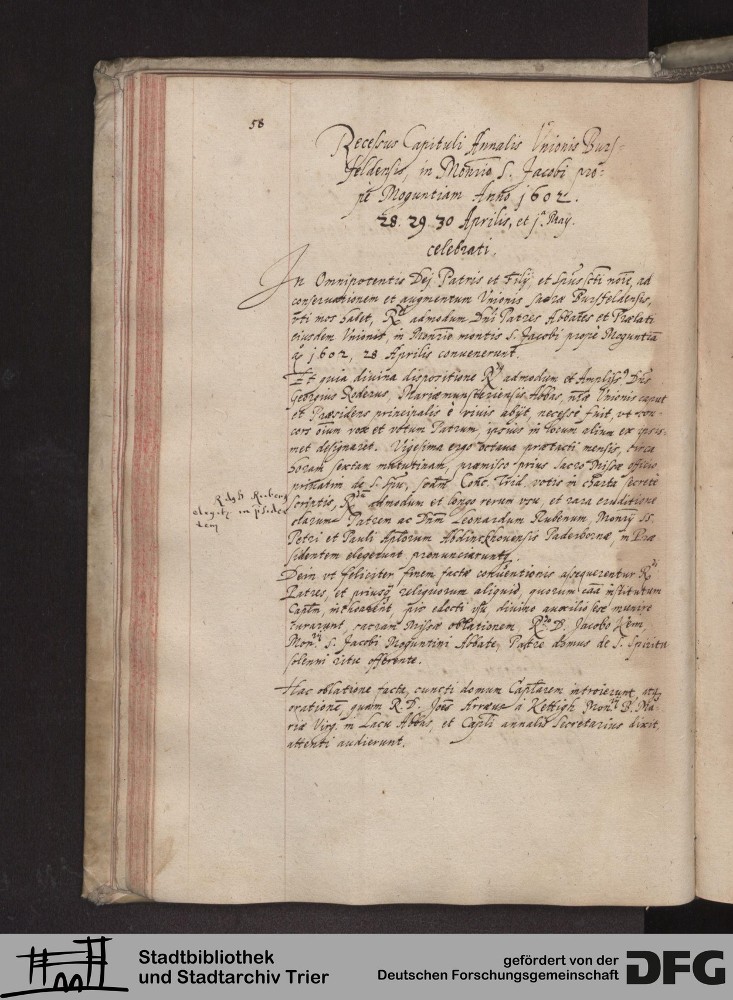 58
Recessus Capituli Annalis Unionis Burs-
feldensis, in Monrio S. Jacobi pro-
pe Moguntiam Anno 1602.
28. 29. 30 Aprilis, et 1ª. Maij
celebrati.
In Omnipotentis Dej Patris et Filij et Spus scti noie, ad
conservationem et augmentum Unionis sacræ Bursfeldensis,
uti mos habet, Rdi admodum Dni Patres Abbates et Prælati
eiusdem Unionis, in Monrio montis S. Jacobi prope Moguntiā
aº 1602, 28 Aprilis convenerunt.
Et quia divina dispositione Rdus admodum et Ampliss9 Dns
Georgius Rederus, Mariæmunsteriensis Abbas, nræ Unionis caput
et Præsidens principalis è vivis abijt, necesse fuit, ut con-
cors oium vox et votum Patrum, ipsius in locum alium ex ipsis-
met designaret. Vigesima ergo octava prætacti mensis, circa
horam sextam matutinam, præmisso prius sacro Missæ officio
de S. Spu, sedm Conc. Trid. votis in charta secretè
scriptis, Rdum admodum et longo rerum usu, et rara eruditione
clarum Patrem ac Dnm Leonardum Rubenum, Monrij SS.
Petri et Pauli Aplorum Abdinckhovensis Paderbornæ, in Præ-
sidentem elegerunt pronunciarunt.
R. D. Ab. Rubeng
eligitr in psiden
tem
Dein ut feliciter finem factæ conventionis assequerentur Rdi
Patres, et priusq reliquorum aliquid, quorum caa institutum
Caplm, inchoarent, pio electi usu divino auxilio sese munire
curarunt, sacram Missæ oblationem, Rdo D. Jacobo Kem,
Monrij S. Jacobi Moguntini Abbate, Patre domus de S. Spiritu
solenni ritu offerente.
Hac oblatione facta, cuncti domum Caplarem introierunt, atq
orationē, quam R. D. Joes Arræus à Kettigh Monrij B. Ma-
riæ Virg. in Lacu Abbas, et Capli annalis Secretarius dixit,
attenti audierunt.
Stadtbibliothek
und Stadtarchiv Trier
gefördert von der
Deutschen Forschungsgemeinschaft
DFG